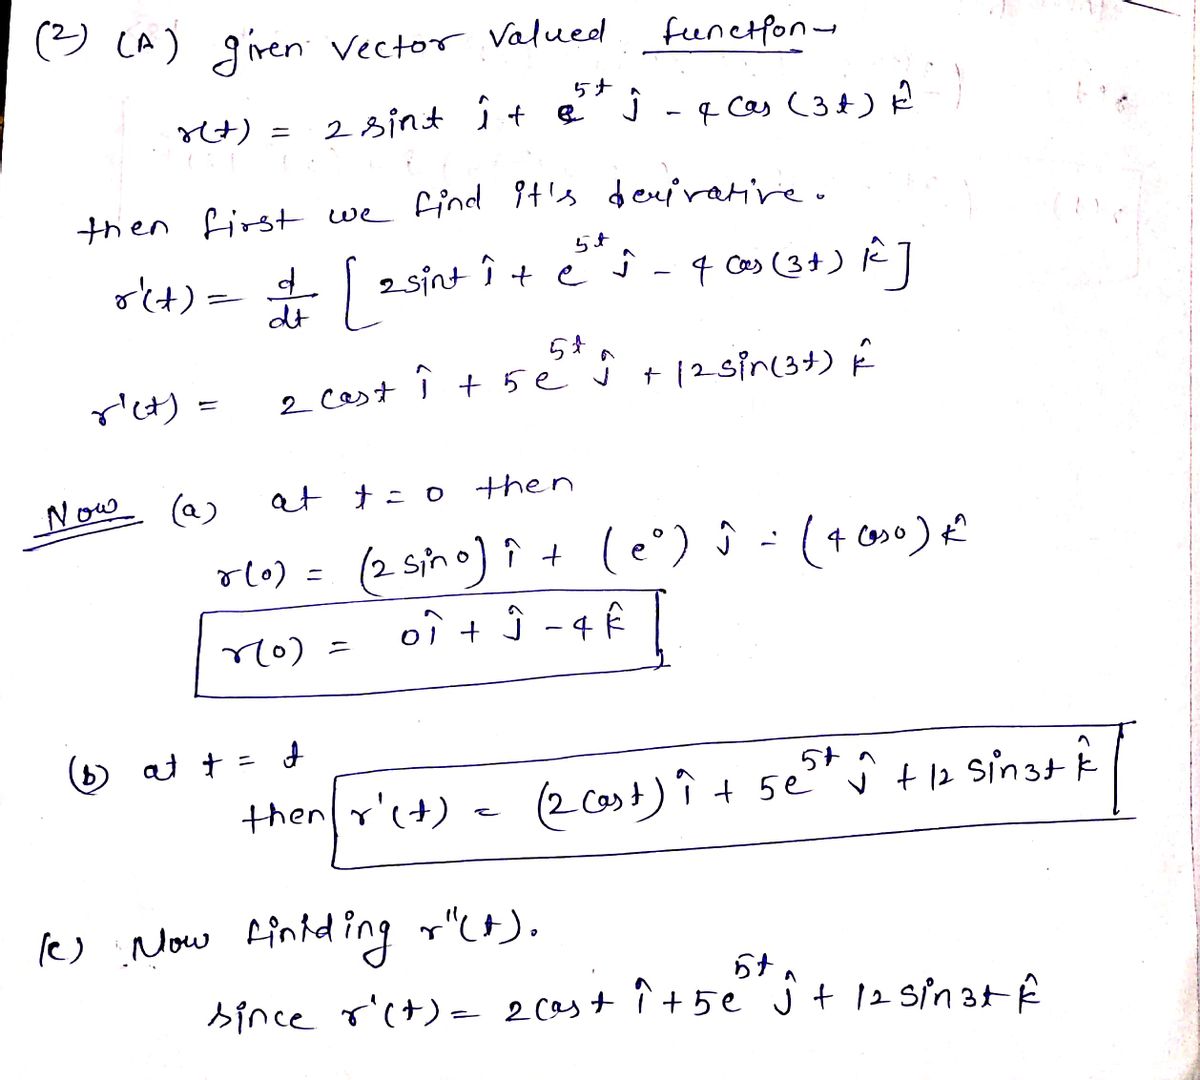 (2) (A) given vector valued function→
r(t) = 2 sint î + e^5t ĵ - 4 cos (3t) k̂
then first we find it's derivative.
r'(t) = d/dt [2 sint î + e^5t ĵ - 4 cos (3t) k̂]
r'(t) = 2 cost î + 5e^5t ĵ + 12 sin(3t) k̂
Now (a) at t = 0 then
r(0) = (2 sin 0) î + (e^0) ĵ - (4 cos 0) k̂
r(0) = 0î + ĵ - 4 k̂
(b) at t = t
then r'(t) = (2 cost) î + 5e^5t ĵ + 12 sin3t k̂
(c) Now finding r"(t).
since r'(t) = 2 cost î + 5e^5t ĵ + 12 sin 3t k̂